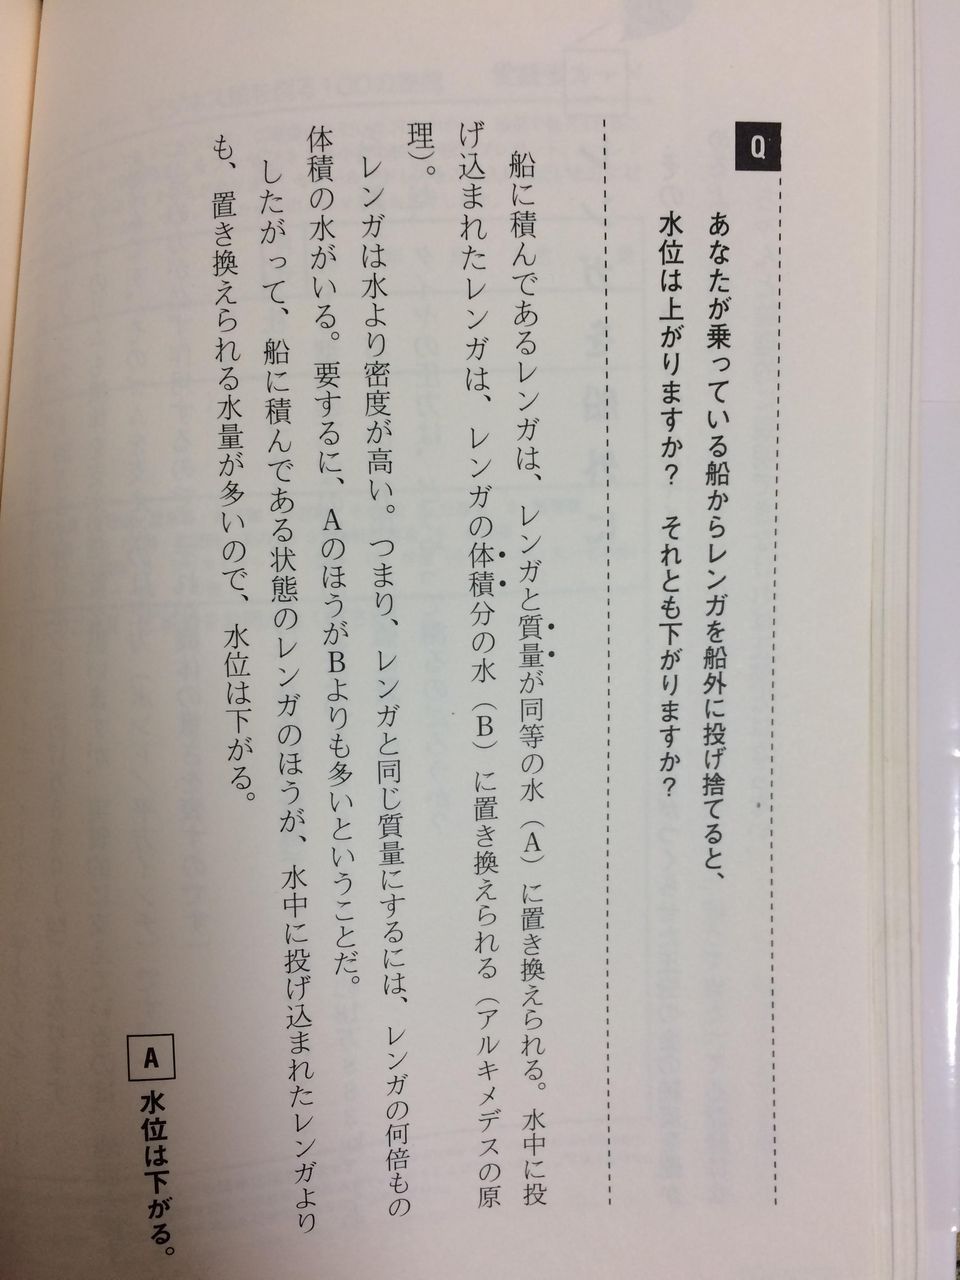 Q
あなたが乗っている船からレンガを船外に投げ捨てると、
水位は上がりますか？　それとも下がりますか？
船に積んであるレンガは、レンガと質量が同等の水（A）に置き換えられる。水中に投
げ込まれたレンガは、レンガの体積分の水（B）に置き換えられる（アルキメデスの原
理）。
レンガは水より密度が高い。つまり、レンガと同じ質量にするには、レンガの何倍もの
体積の水がいる。要するに、AのほうがBよりも多いということだ。
したがって、船に積んである状態のレンガのほうが、水中に投げ込まれたレンガより
も、置き換えられる水量が多いので、水位は下がる。
A 水位は下がる。